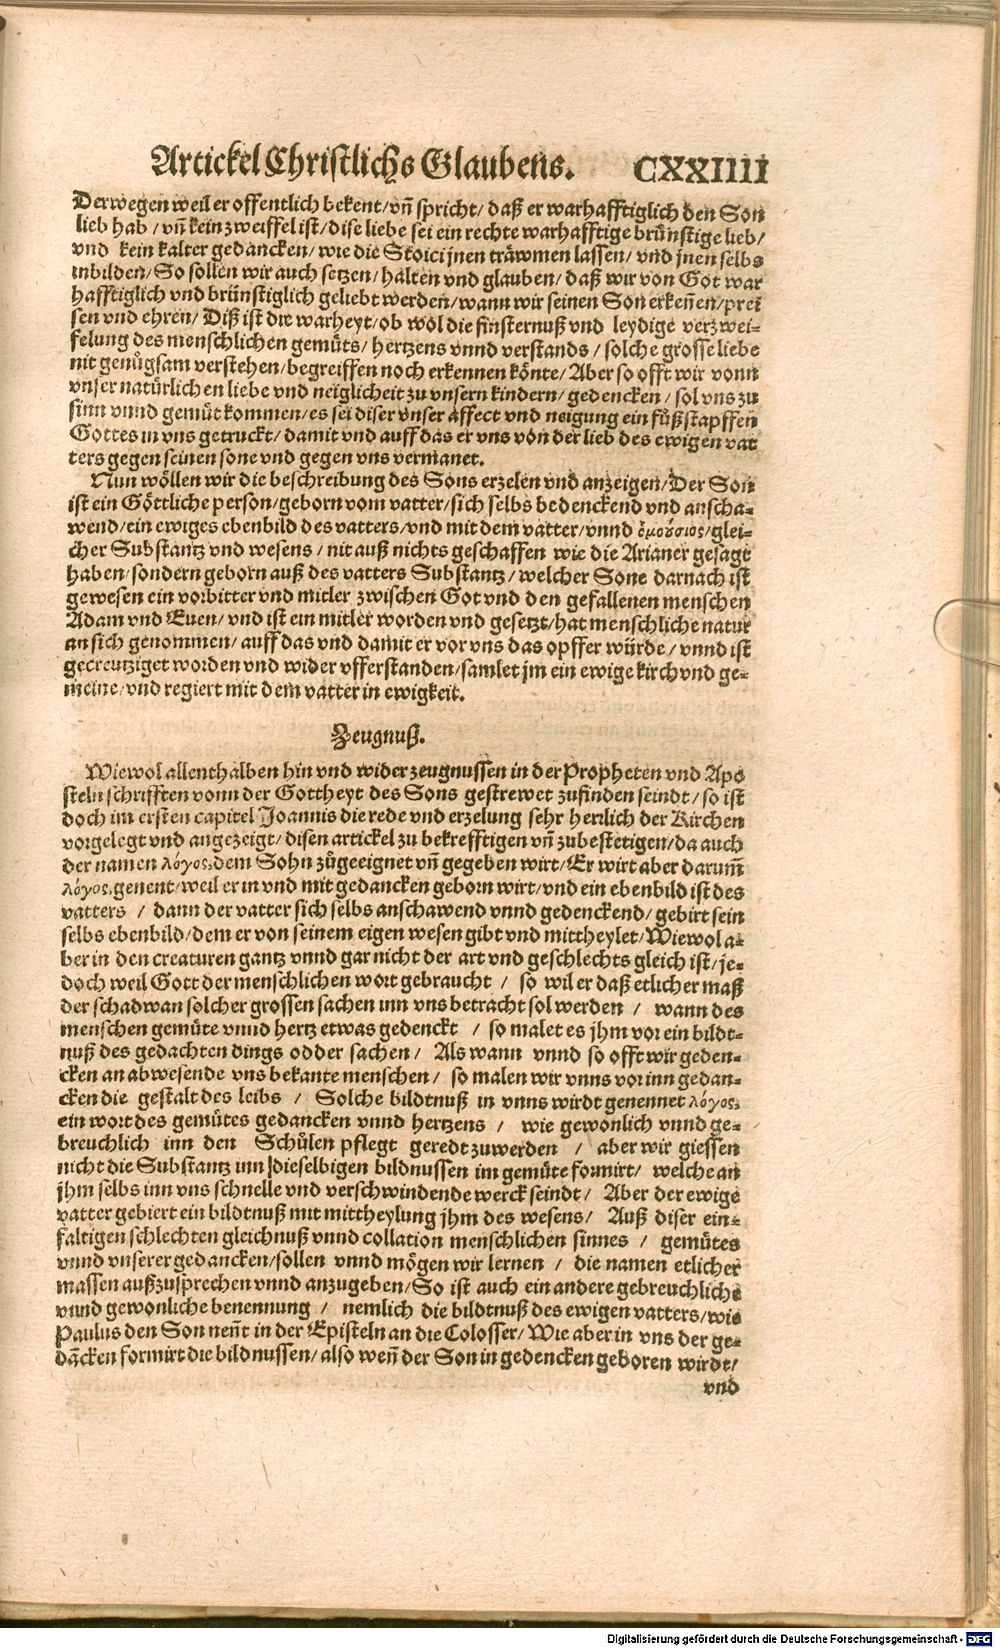 Artickel Christlichs Glaubens. CXXIIII
Derwegen weil er offentlich bekent/ vñ spricht/ daß er warhafftiglich den Son
lieb hab / vñ kein zweiffel ist/ dise liebe sei ein rechte warhafftige brünstige lieb/
vnd kein kalter gedancken/ wie die Stoici jnen träwmen lassen/ vnd jnen selbs
inbilden/ So sollen wir auch setzen/ halten vnd glauben/ daß wir von Got war
hafftiglich vnd brünstiglich geliebt werden/ wann wir seinen Son erkeñen/ prei
sen vnd ehren/ Diß ist die warheyt/ ob wol die finsternuß vnd leydige verzwei-
felung des menschlichen gemüts/ hertzens vnnd verstands / solche grosse liebe
nit genůgsam verstehen/ begreiffen noch erkennen könte/ Aber so offt wir vonn
vnser natürlichen liebe vnd neiglicheit zu vnsern kindern/ gedencken / sol vns zu
sinn vnnd gemüt kommen/ es sei diser vnser affect vnd neigung ein fůßstapffen
Gottes in vns getruckt/ damit vnd auff das er vns von der lieb des ewigen vat
ters gegen seinen sone vnd gegen vns vermanet.
Nun wöllen wir die beschreibung des Sons erzelen vnd anzeigen/ Der Son
ist ein Göttliche person/ geborn vom vatter/ sich selbs bedenckend vnd anscha-
wend/ ein ewiges ebenbild des vatters/ vnd mit dem vatter/ vnnd ὁμούσιος/ glei-
cher Substantz vnd wesens / nit auß nichts geschaffen wie die Arianer gesagt
haben/ sondern geborn auß des vatters Substantz/ welcher Sone darnach ist
gewesen ein vorbitter vnd mitler zwischen Got vnd den gefallenen menschen
Adam vnd Euen/ vnd ist ein mitler worden vnd gesetzt/ hat menschliche natur
an sich genommen/ auff das vnd damit er vor vns das opffer würde/ vnnd ist
gecreutziget worden vnd wider vfferstanden/ samlet jm ein ewige kirch vnd ge-
meine/ vnd regiert mit dem vatter in ewigkeit.
Zeugnuß.
Wiewol allenthalben hin vnd wider zeugnussen in der Propheten vnd Apo
steln schrifften vonn der Gottheyt des Sons gestrewet zufinden seindt/ so ist
doch im ersten capitel Joannis die rede vnd erzelung sehr herrlich der Kirchen
vorgelegt vnd angezeigt/ disen artickel zu bekrefftigen vñ zubestetigen/ da auch
der namen λόγος, dem Sohn zůgeeignet vñ gegeben wirt/ Er wirt aber darum̃
λόγος, genent/ weil er in vnd mit gedancken geborn wirt/ vnd ein ebenbild ist des
vatters / dann der vatter sich selbs anschawend vnnd gedenckend/ gebirt sein
selbs ebenbild/ dem er von seinem eigen wesen gibt vnd mittheylet/ Wiewol a-
ber in den creaturen gantz vnnd gar nicht der art vnd geschlechts gleich ist/ je-
doch weil Gott der menschlichen wort gebraucht / so wil er daß etlicher maß
der schadwan solcher grossen sachen inn vns betracht sol werden / wann des
menschen gemüte vnnd hertz etwas gedenckt / so malet es jhm vor ein bildt-
nuß des gedachten dings odder sachen/ Als wann vnnd so offt wir geden-
cken an abwesende vns bekante menschen/ so malen wir vnns vor inn gedan-
cken die gestalt des leibs / Solche bildtnuß in vnns wirdt genennet λόγος,
ein wort des gemütes gedancken vnnd hertzens / wie gewonlich vnnd ge-
breuchlich inn den Schůlen pflegt geredt zuwerden / aber wir giessen
nicht die Substantz inn dieselbigen bildnussen im gemüte formirt/ welche an
jhm selbs inn vns schnelle vnd verschwindende werck seindt/ Aber der ewige
vatter gebiert ein bildtnuß mit mittheylung jhm des wesens/ Auß diser ein-
faltigen schlechten gleichnuß vnnd collation menschlichen sinnes / gemütes
vnnd vnserer gedancken/ sollen vnnd mögen wir lernen / die namen etlicher
massen außzusprechen vnnd anzugeben/ So ist auch ein andere gebreuchliche
vnnd gewonliche benennung / nemlich die bildtnuß des ewigen vatters/ wie
Paulus den Son neñt in der Episteln an die Colosser/ Wie aber in vns der ge-
dãcken formirt die bildnussen/ also weñ der Son in gedencken geboren wirdt/
vnd
Digitalisierung gefördert durch die Deutsche Forschungsgemeinschaft - DFG